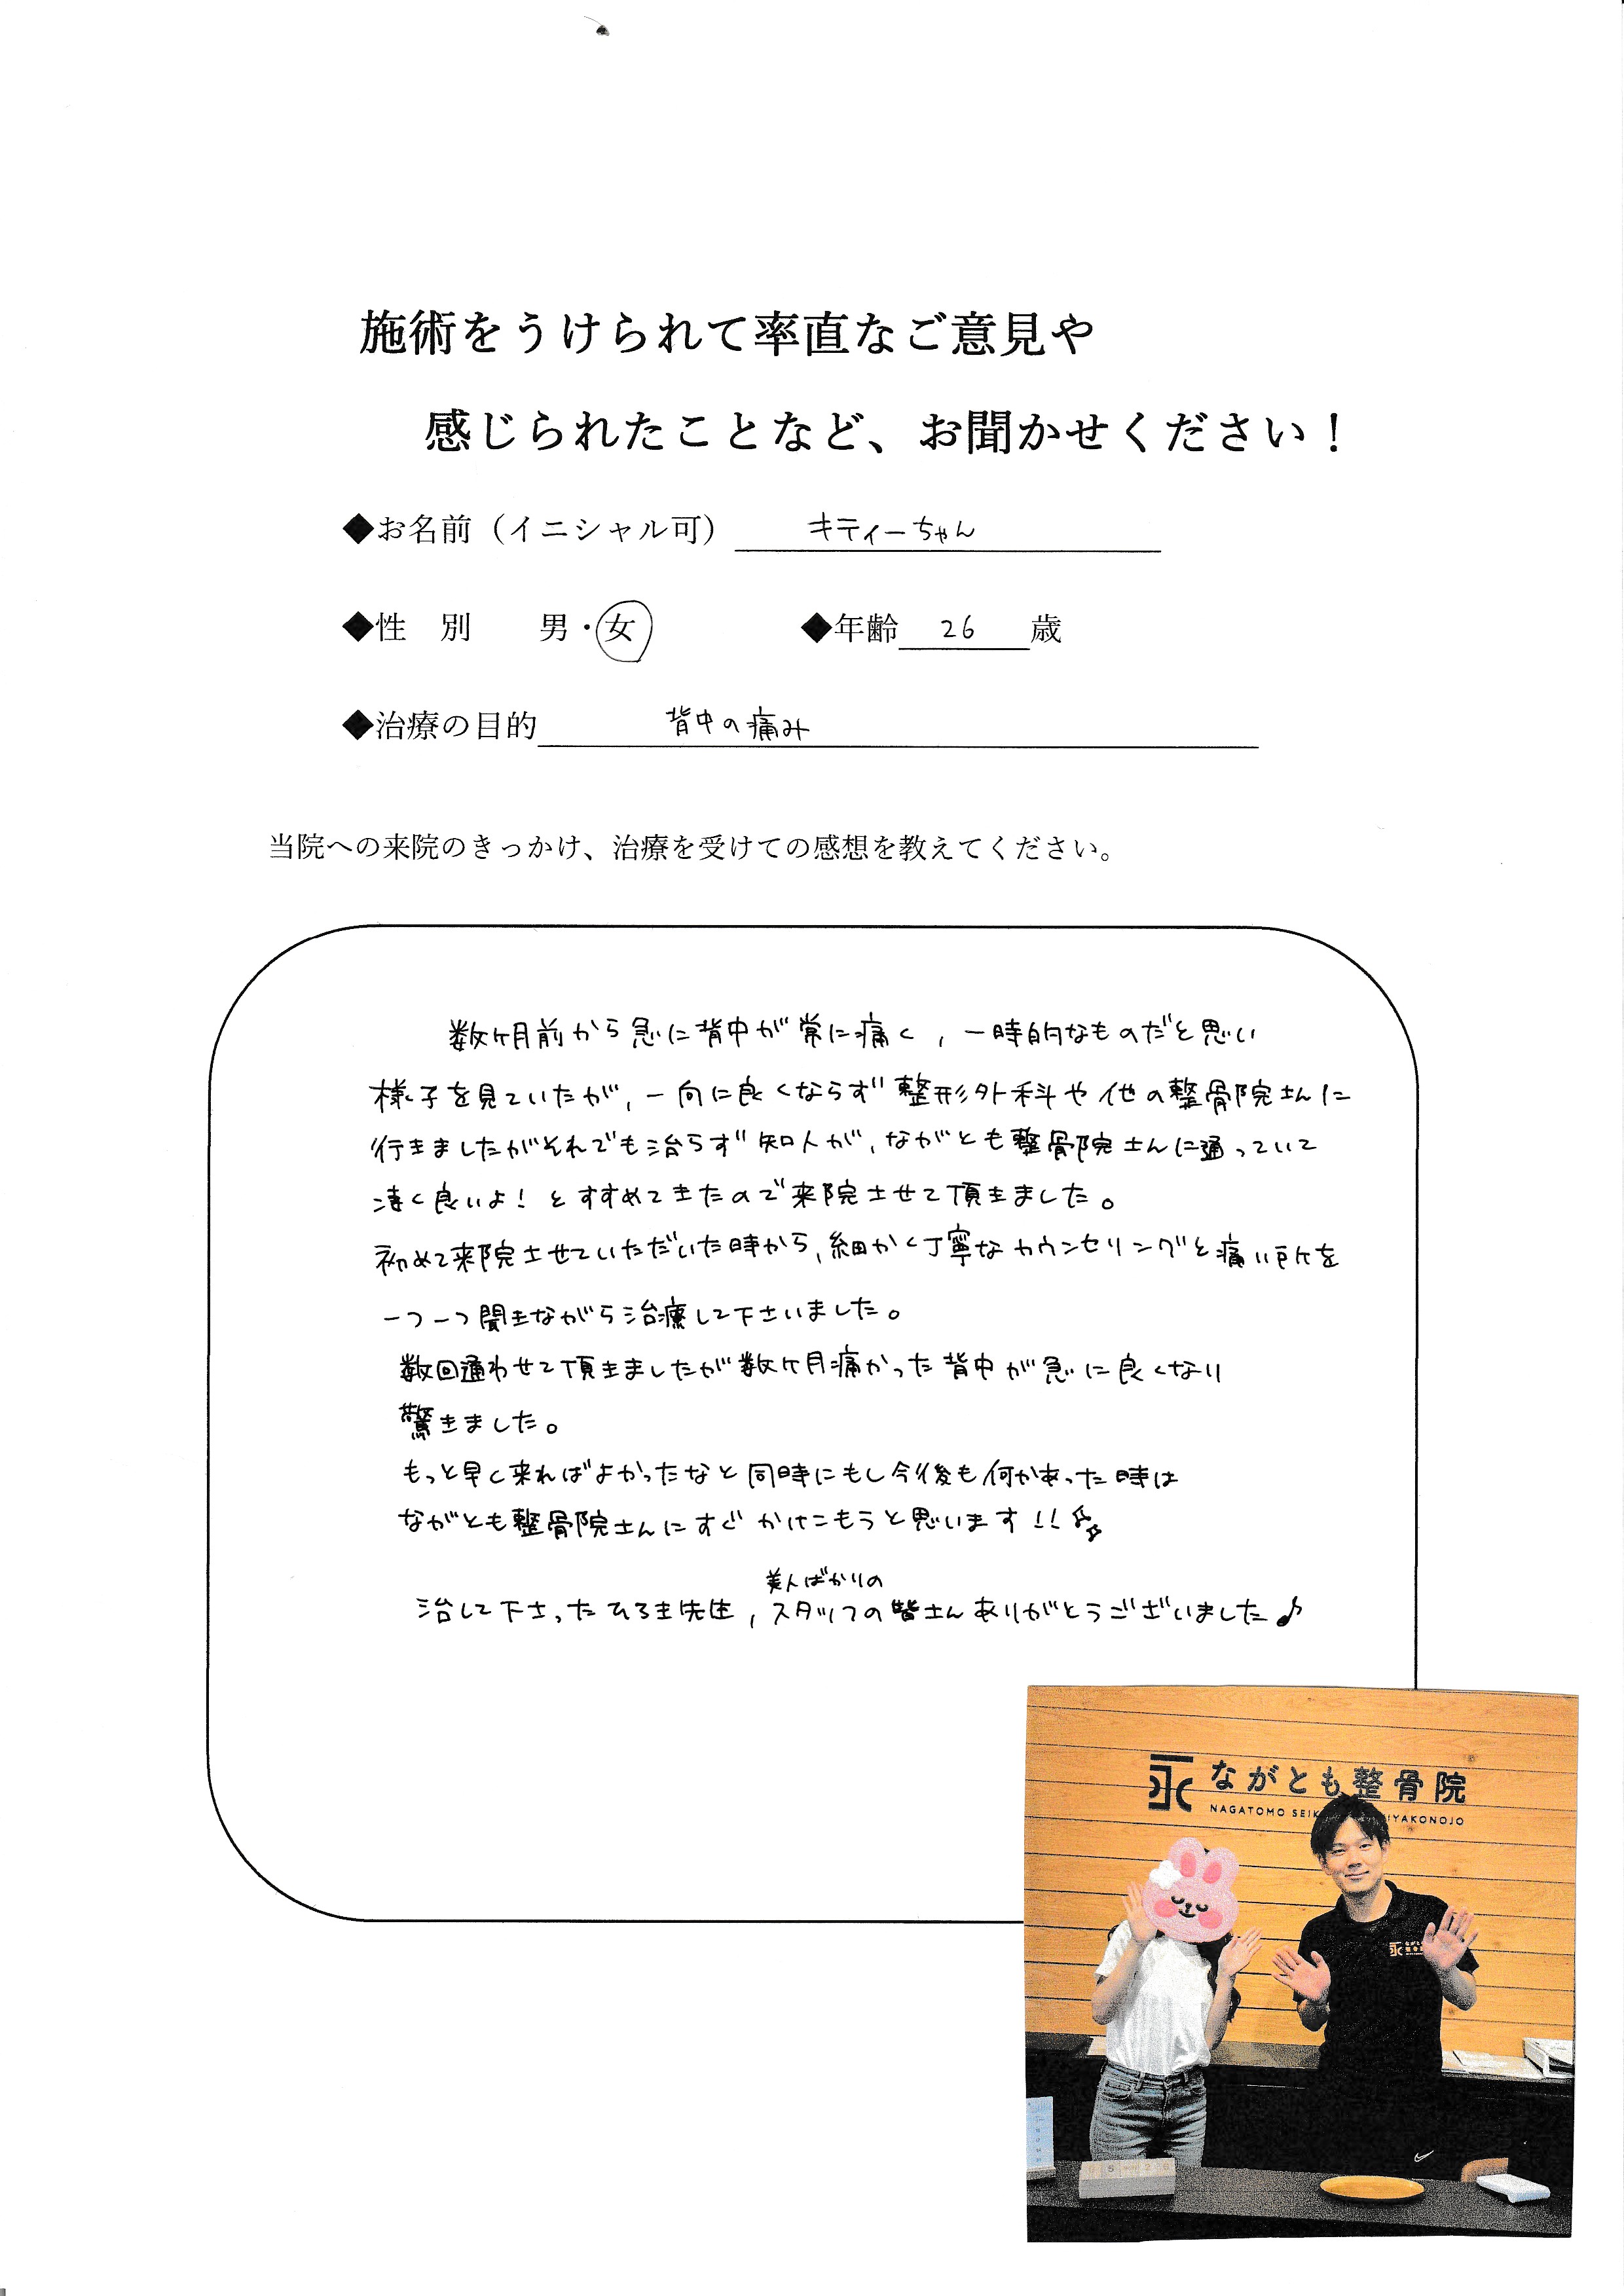 施術をうけられて率直なご意見や
感じられたことなど、お聞かせください！
◆お名前（イニシャル可） キティーちゃん
◆性 別 男・女 ◆年齢 26 歳
◆治療の目的 背中の痛み
当院への来院のきっかけ、治療を受けての感想を教えてください。
数ヶ月前から急に背中が常に痛く、一時的なものだと思い
様子を見ていたが、一向に良くならず整形外科や他の整骨院さんに
行きましたがそれでも治らず知人が、ながとも整骨院さんに通っていて
凄く良いよ！とすすめてきたので来院させて頂きました。
初めて来院させていただいた時から、細かく丁寧なカウンセリングと痛い所を
一つ一つ聞きながら治療して下さいました。
数回通わせて頂きましたが数ヶ月痛かった背中が急に良くなり
驚きました。
もっと早く来ればよかったなと同時にもし今後も何かあった時は
ながとも整骨院さんにすぐかけこもうと思います!!
美人ばかりの
治して下さったひろき先生、スタッフの皆さんありがとうございました♪
ながとも整骨院
NAGATOMO SEIK IYAKONOJO